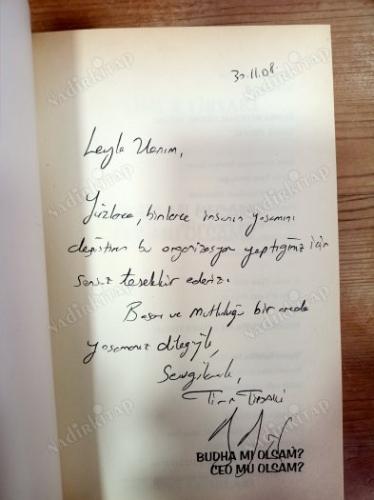 30.11.08
Leyla Hanım,
Yüzlerce, binlerce insanın yaşamını
değiştiren bu organizasyon yaptığınız için
sonsuz teşekkür ederiz.
Başarı ve Mutluluğu bir arada
yaşamanız dileğiyle,
Sevgilerimle,
BUDHA MI OLSAM?
CEO MU OLSAM?
NADİRKİTAP